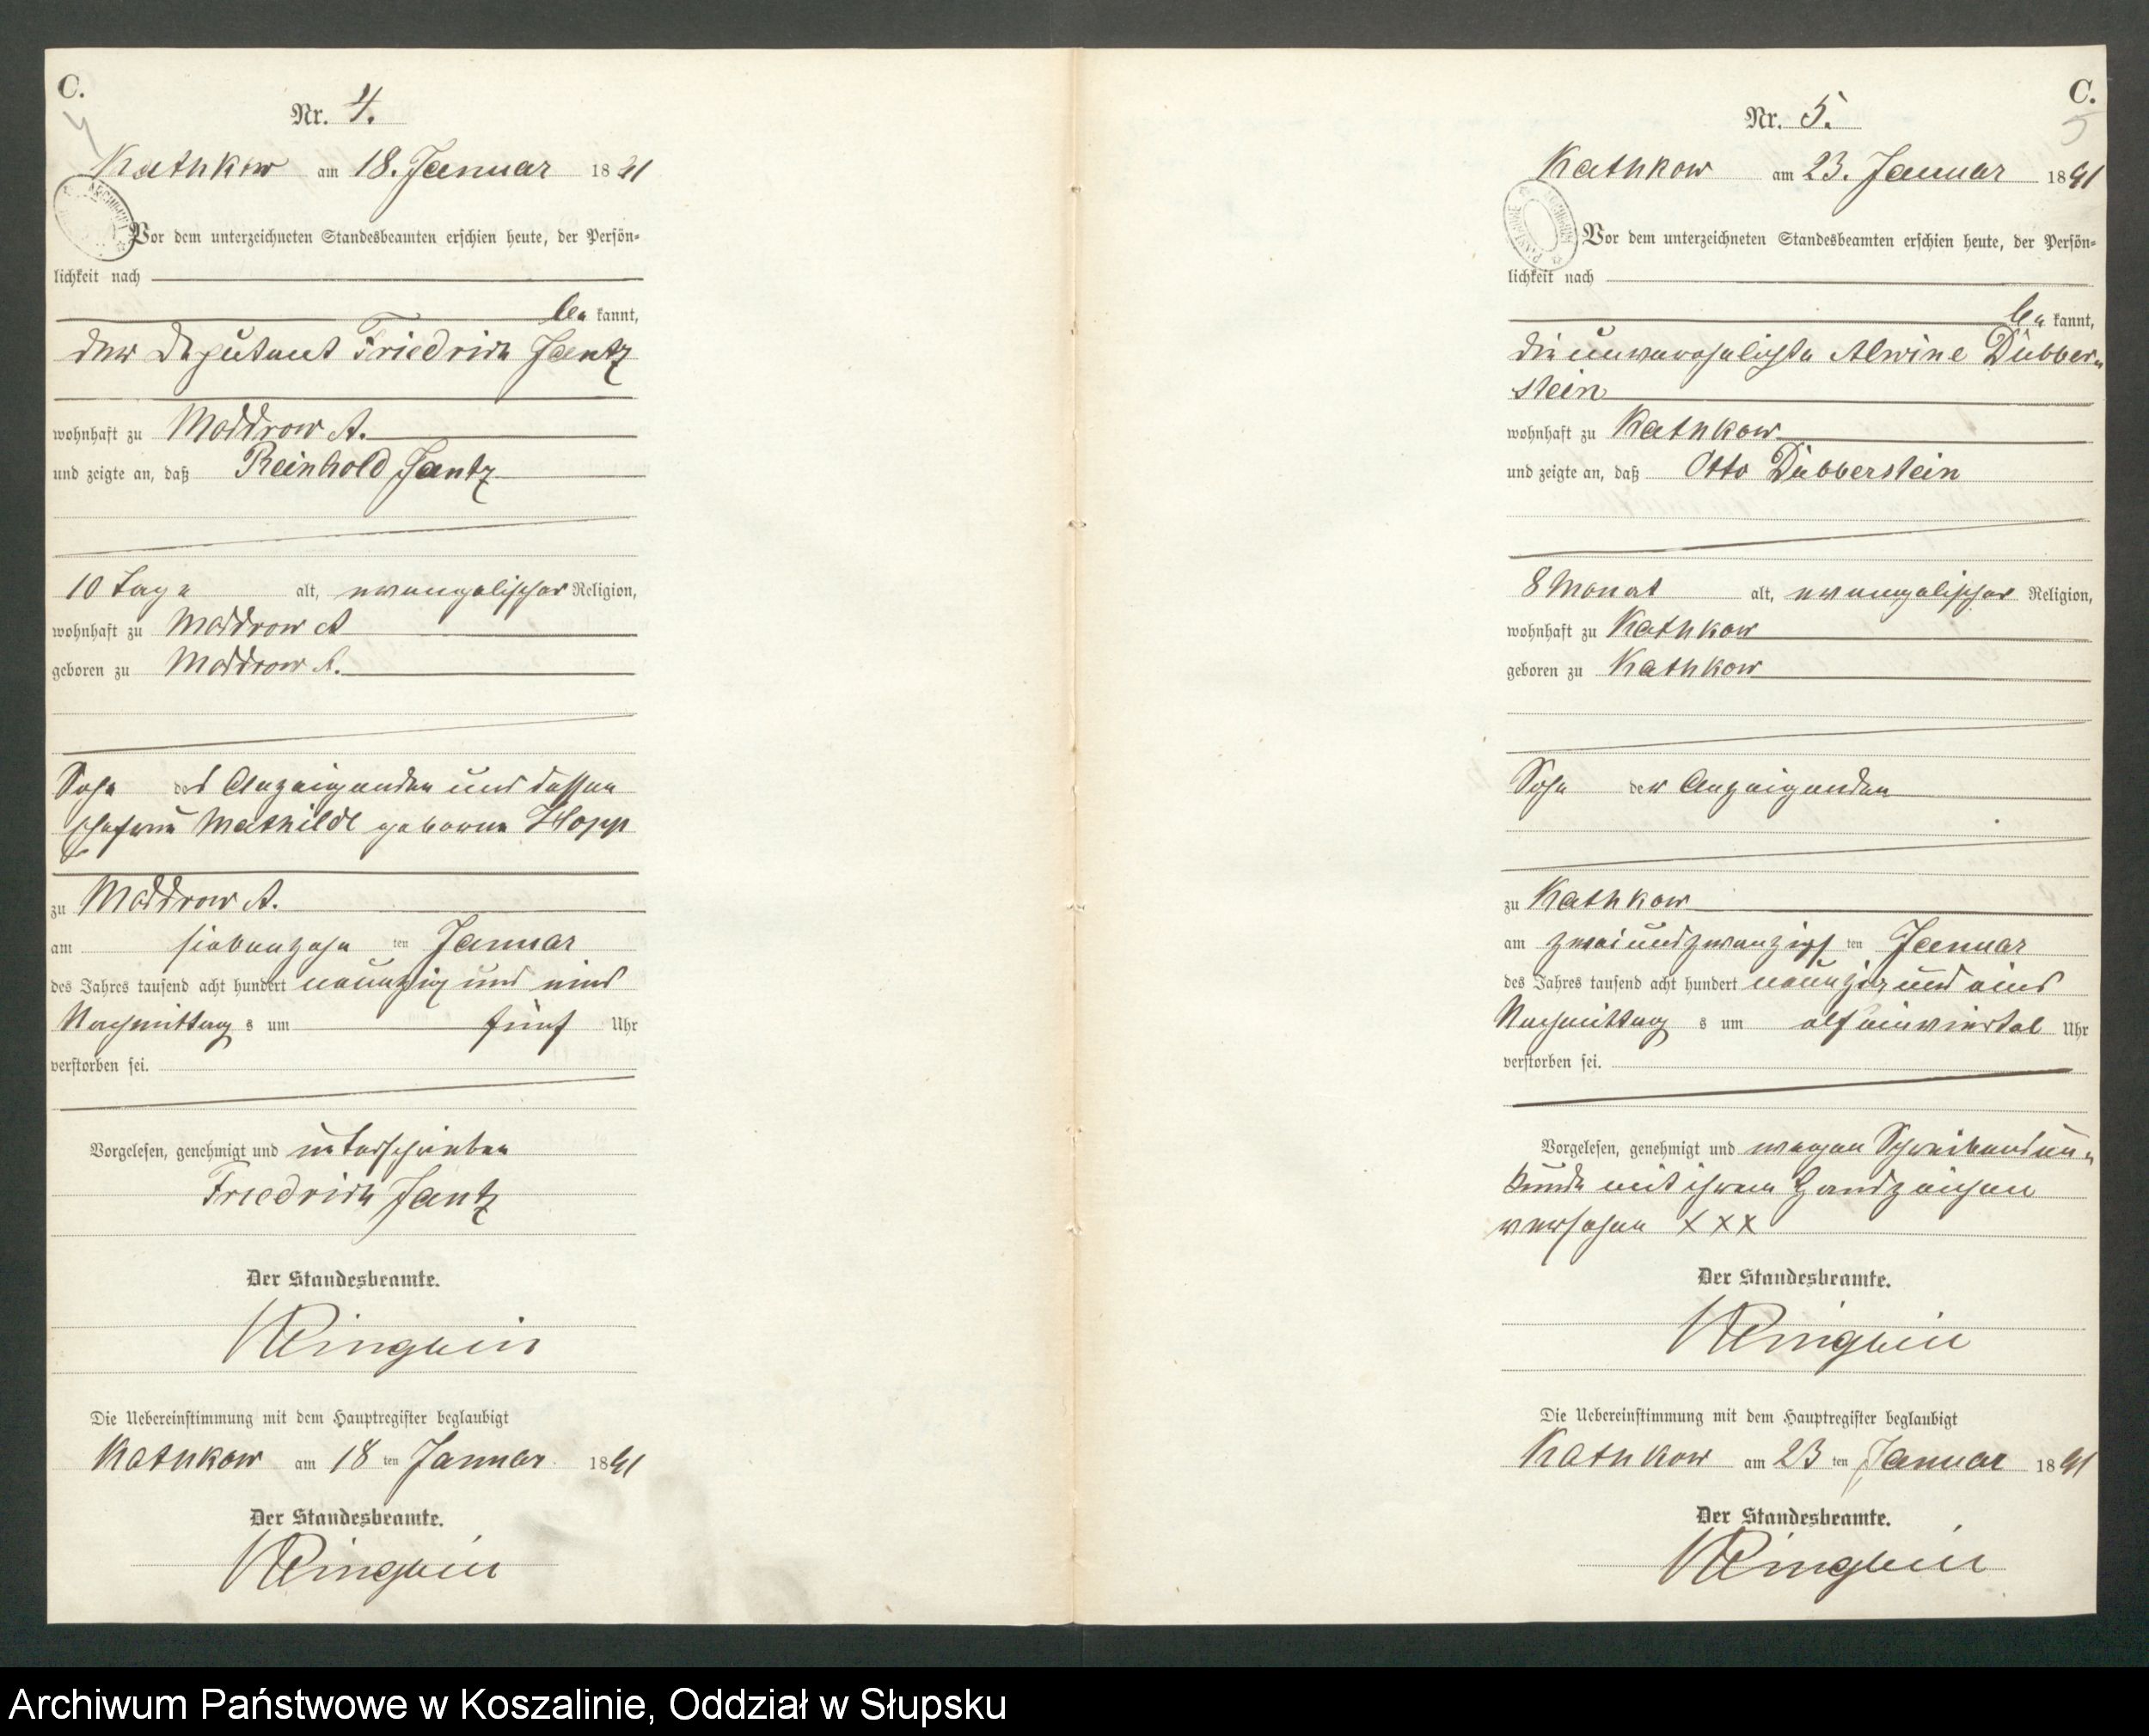 C.
4
Nr. 4.
Kathkow am 18. Januar 1891
Vor dem unterzeichneten Standesbeamten erschien heute, der Persön-
lichkeit nach
be kannt,
der Deputant Friedrich Jantz
wohnhaft zu Moddrow A.
und zeigte an, daß Reinhold Jantz
10 Tage alt, evangelischer Religion,
wohnhaft zu Moddrow A
geboren zu Moddrow A.
Sohn des Anzeigenden und dessen
Ehefrau Mathilde geborne Hopp
zu Moddrow A.
am siebenzehn ten Januar
des Jahres tausend acht hundert neunzig und eins
Nachmittag s um fünf Uhr
verstorben sei.
Vorgelesen, genehmigt und unterschrieben
Friedrich Jantz
Der Standesbeamte.
Die Uebereinstimmung mit dem Hauptregister beglaubigt
Kathkow am 18 ten Januar 1891
Der Standesbeamte.
C.
5
Nr. 5.
Kathkow am 23. Januar 1891
Vor dem unterzeichneten Standesbeamten erschien heute, der Persön-
lichkeit nach
be kannt,
die unverehelichte Alwine Dubber-
stein
wohnhaft zu Kathkow
und zeigte an, daß Otto Dubberstein
8 Monat alt, evangelischer Religion,
wohnhaft zu Kathkow
geboren zu Kathkow
Sohn der Anzeigenden
zu Kathkow
am zweiundzwanzigst ten Januar
des Jahres tausend acht hundert neunzig und eins
Nachmittag s um elf einviertel Uhr
verstorben sei.
Vorgelesen, genehmigt und wegen Schreibensun-
kunde mit ihrem Handzeichen
versehen XXX
Der Standesbeamte.
Die Uebereinstimmung mit dem Hauptregister beglaubigt
Kathkow am 23 ten Januar 1891
Der Standesbeamte.
Archiwum Państwowe w Koszalinie, Oddział w Słupsku